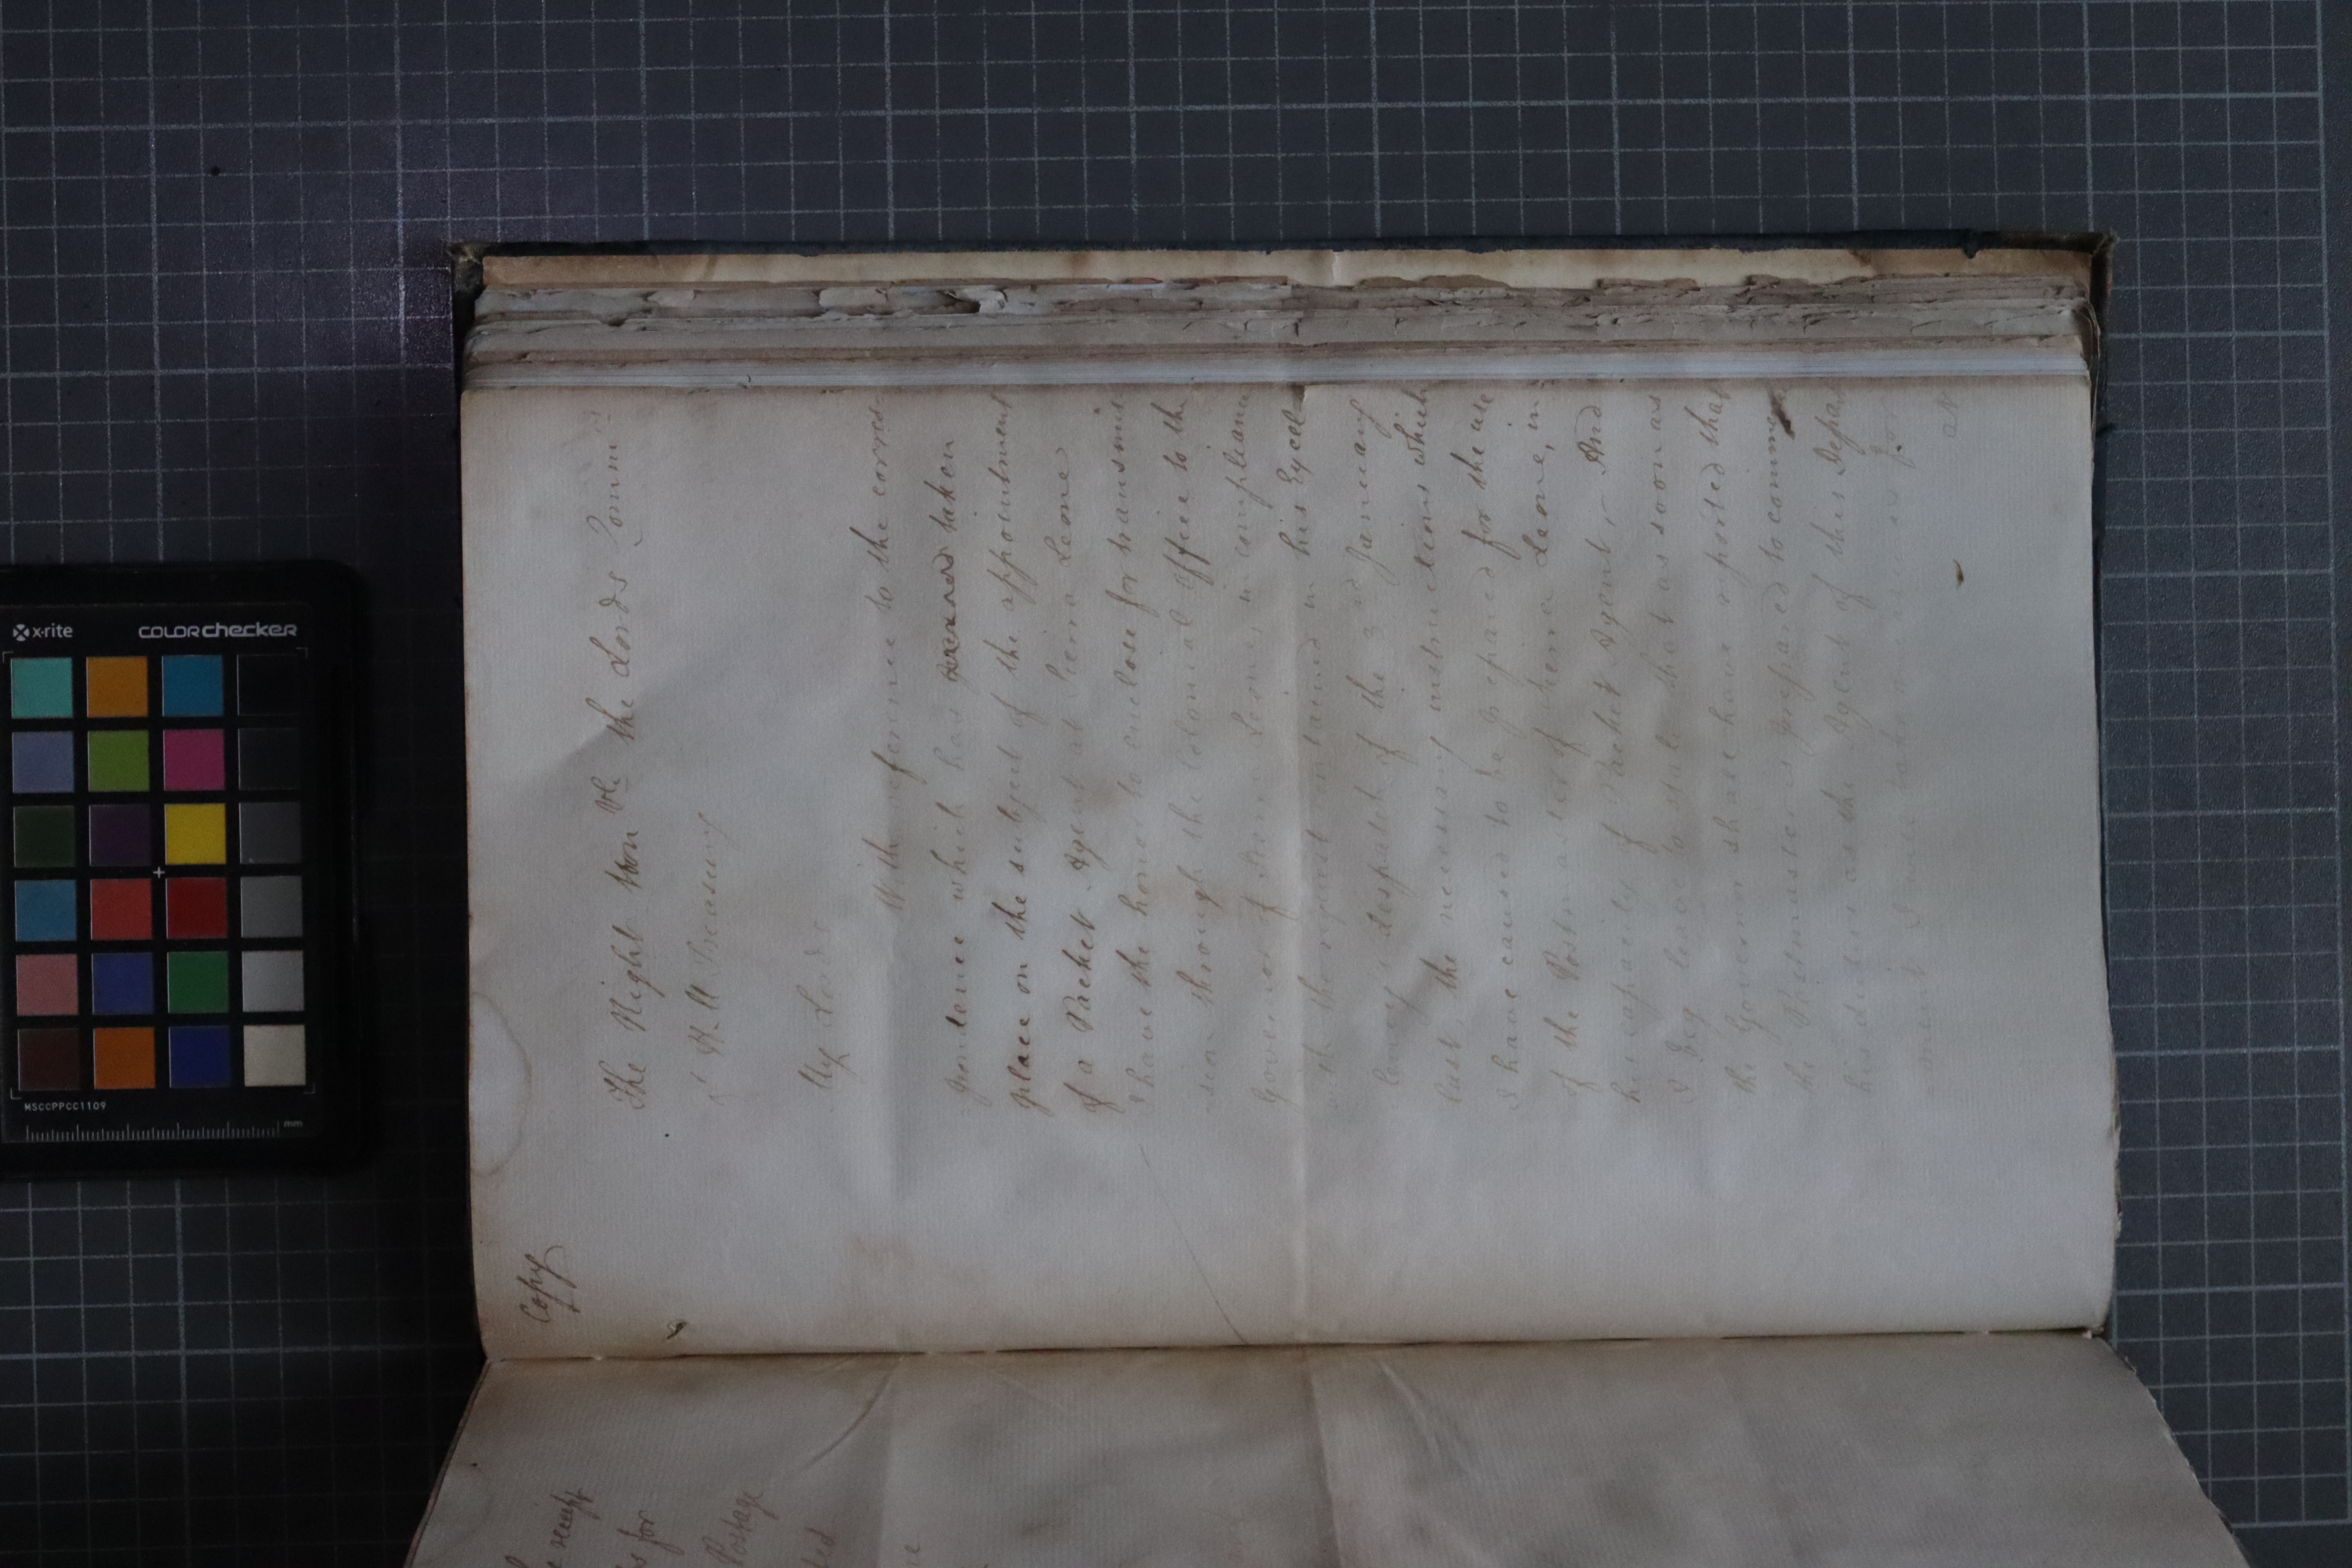 Copy
The Right Hon ble the Lords Commis
of H. M. Treasury
My Lords
With reference to the corres-
pondence which has taken
place on the subject of the appointment
of a Packet Agent at Sierra Leone
I have the honor to enclose for transmis
sion through the Colonial Office to the
Governor of Sierra Leone in compliance
with the request contained in his Excel
lency's despatch of the 3rd January
last, the necessary instructions which
I have caused to be prepared for the use
of the Postmaster of Sierra Leone, in
his capacity of Packet Agent, - And
I beg leave to state that as soon as
the Governor shall have reported that
the Postmaster is prepared to commence
his duties as the Agent of this Depar
tment I will take measures for
receipt
s for
Postage
x-rite
colorchecker
MSCCPPCC1109
mm